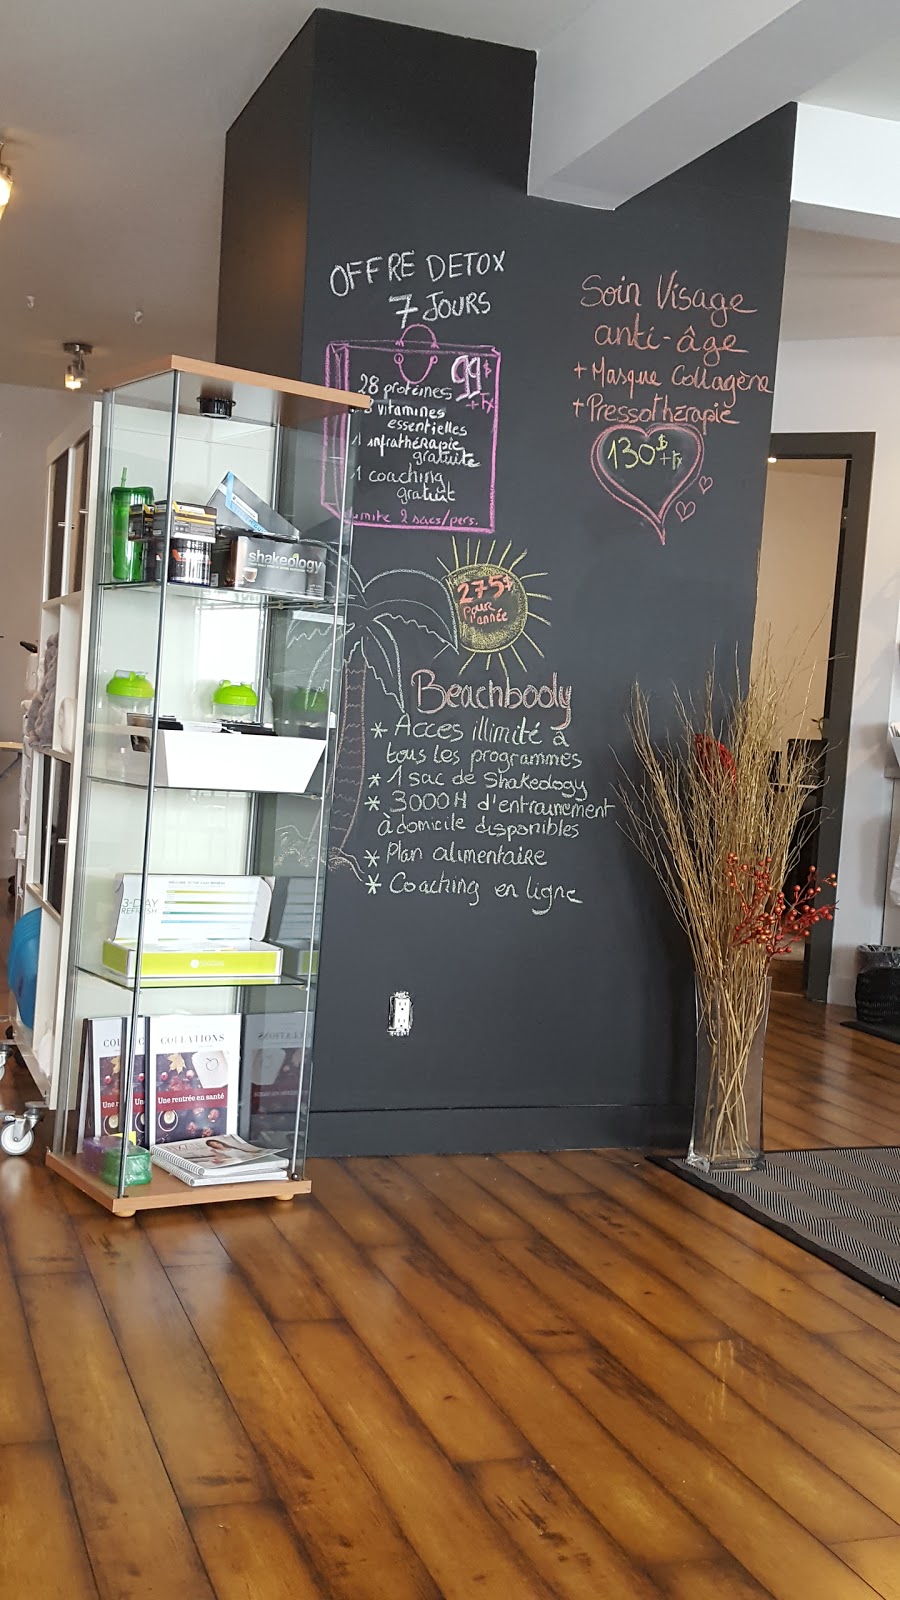 OFFRE DETOX
7 JOURS
99$
+tx
28 protéines
3 vitamines
essentielles
1 infrathérapie
gratuite
1 coaching
gratuit
2 sacs/pers.
Soin Visage
anti-âge
+ Masque Collagène
+ Pressothérapie
130$
+tx
275$
pour
l'année
Beachbody
* Acces illimité à
tous les programmes
* 1 sac de Shakeology
* 3000H d'entrainement
à domicile disponibles
* Plan alimentaire
* Coaching en ligne
shakeology
3-DAY
REFRESH
COLLATIONS
Une rentrée en santé